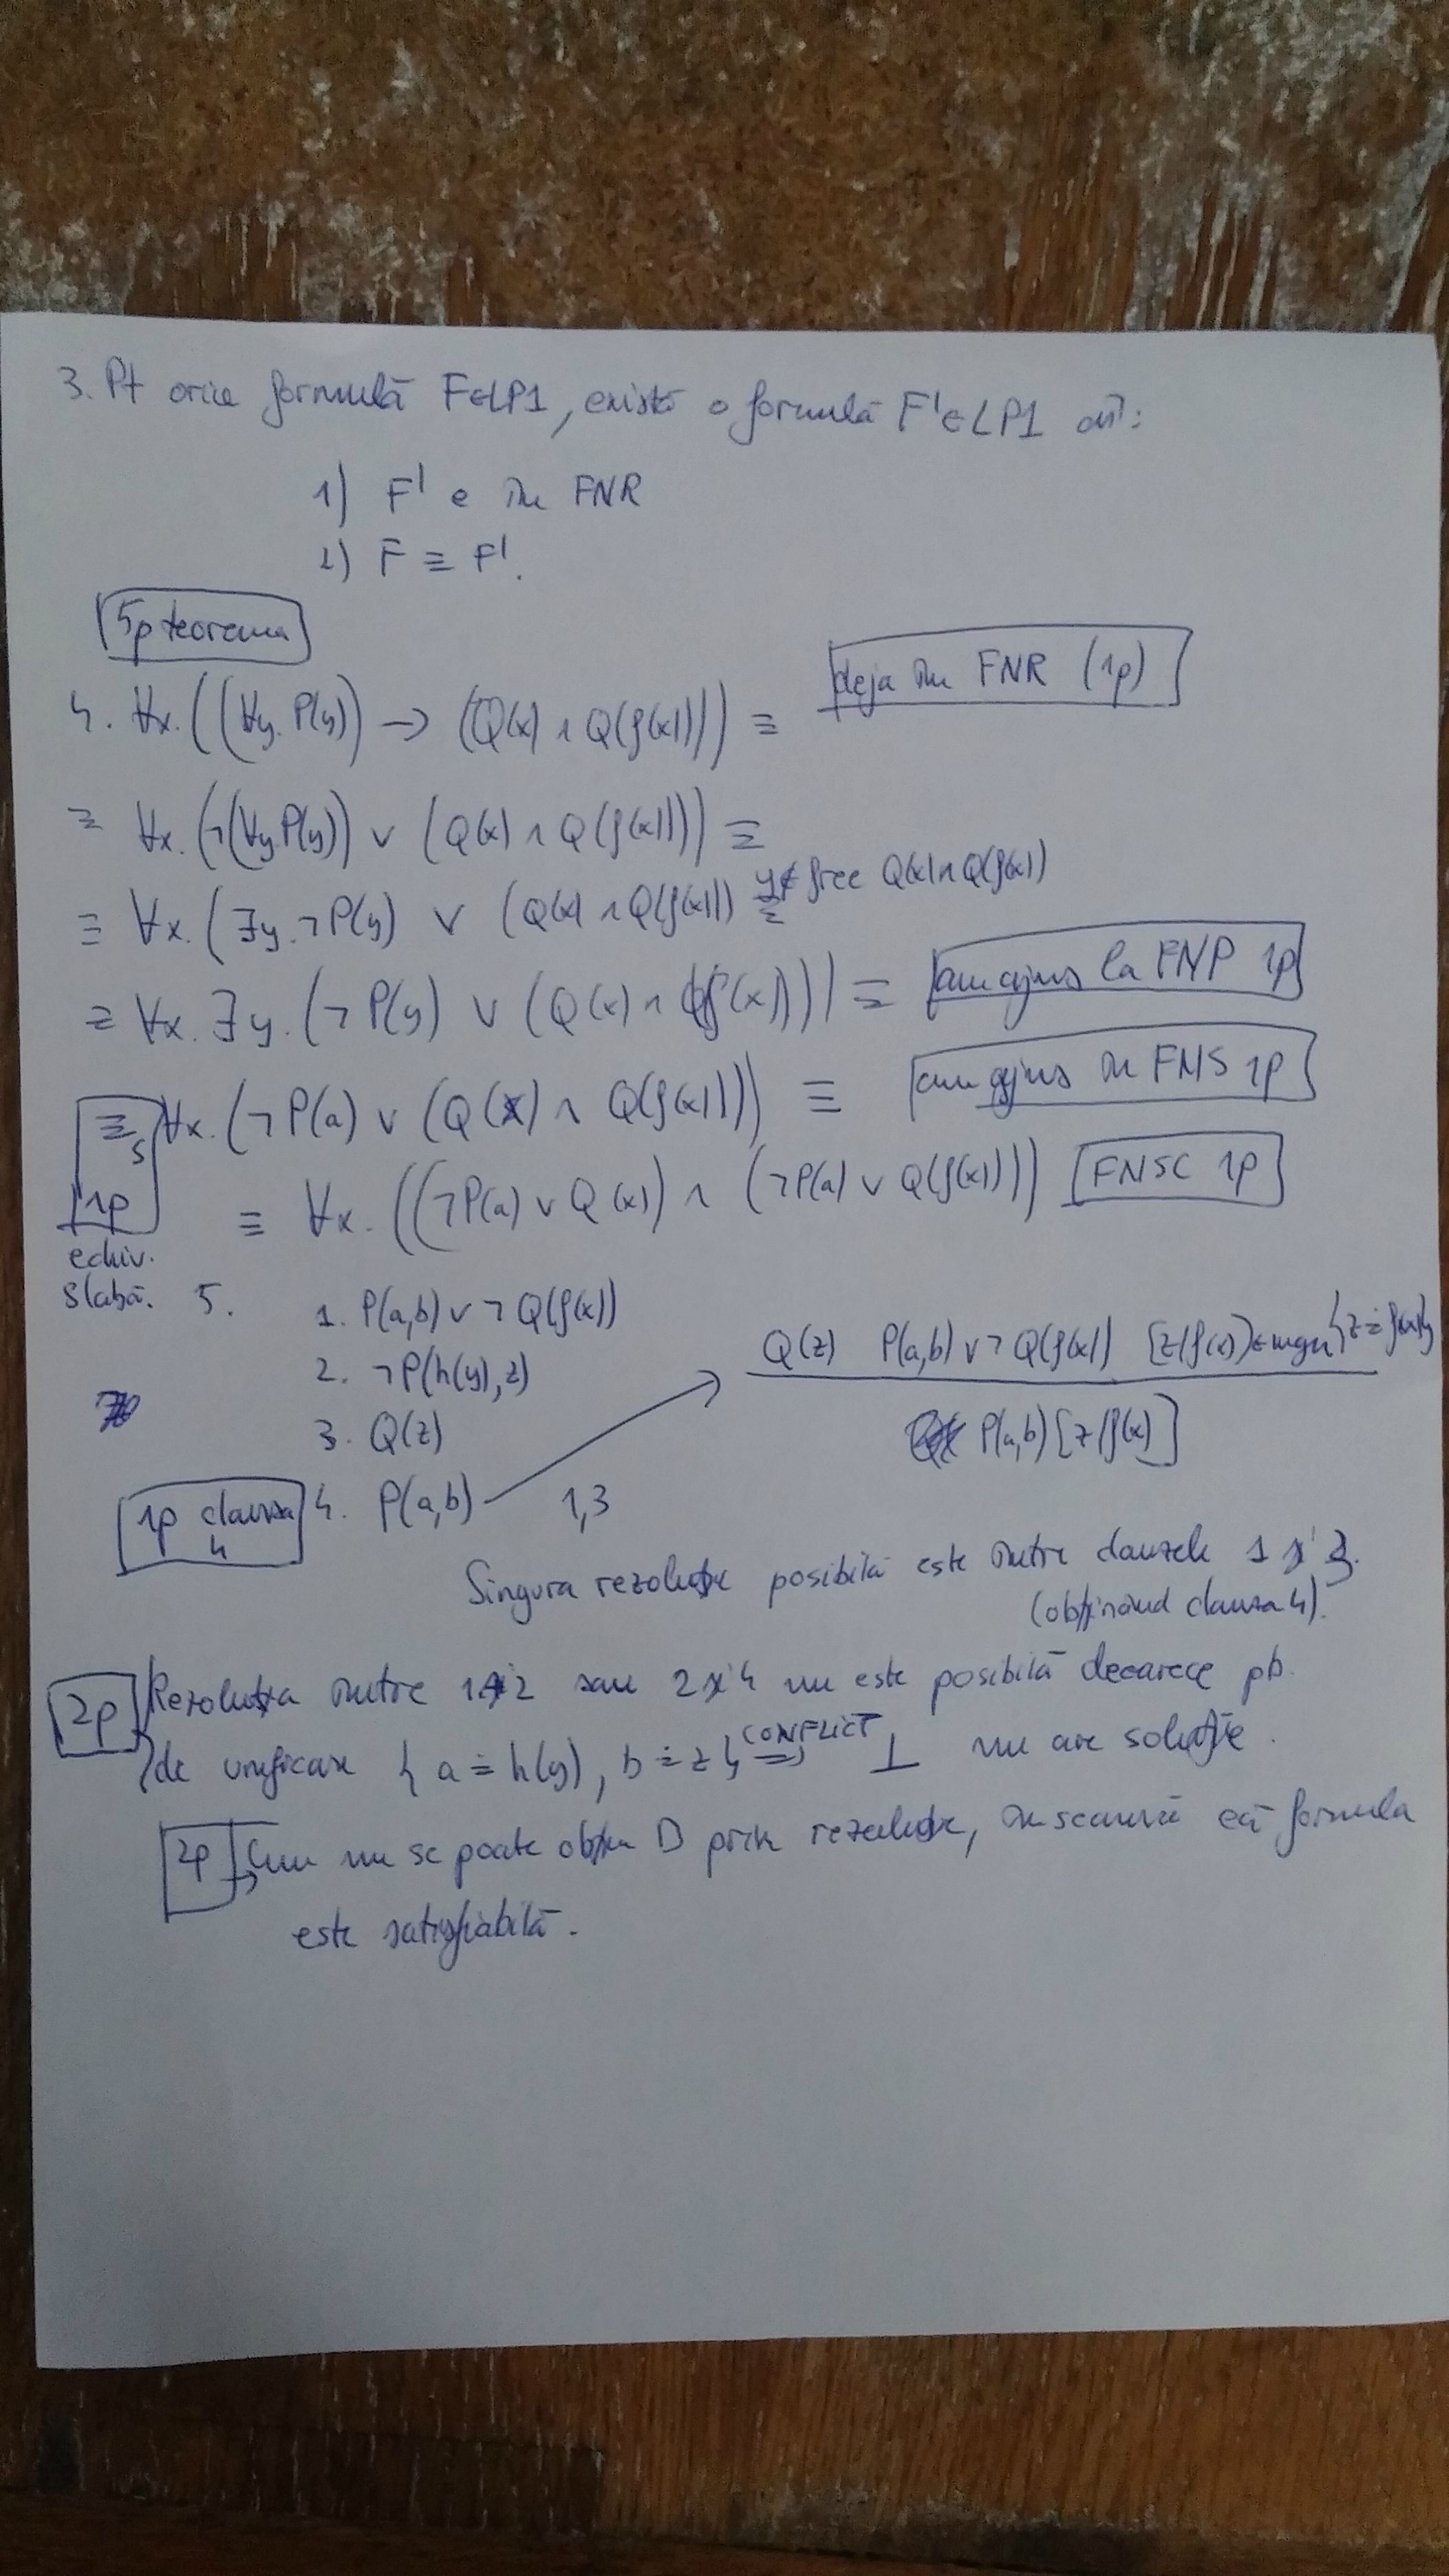 3. Pt orice formulă F∈LP1, există o formulă F'∈LP1 aî:
1) F' e în FNR
2) F ≡ F'.
5p teorema
deja în FNR (1p)
4. ∀x.((∀y.P(y)) → (Q(x) ∧ Q(f(x)))) ≡
≡ ∀x.(¬(∀y.P(y)) ∨ (Q(x) ∧ Q(f(x)))) ≡
≡ ∀x.(∃y.¬P(y) ∨ (Q(x) ∧ Q(f(x))) ≡ y∉ free Q(x)∧Q(f(x))
≡ ∀x.∃y.(¬P(y) ∨ (Q(x) ∧ Q(f(x)))) ≡ am ajuns la FNP 1p
≡s ∀x.(¬P(a) ∨ (Q(x) ∧ Q(f(x)))) ≡ am ajuns în FNS 1p
1p
echiv.
slabă.
≡ ∀x.((¬P(a) ∨ Q(x)) ∧ (¬P(a) ∨ Q(f(x)))) FNSC 1p
5. 1. P(a,b) ∨ ¬Q(f(x))
2. ¬P(h(y),z)
3. Q(z)
1p clauza 4
4. P(a,b) 1,3
Q(z) P(a,b) ∨ ¬Q(f(x)) [z/f(x)]∈mgu{z≐f(x)}
P(a,b)[z/f(x)]
Singura rezoluție posibilă este între clauzele 1 și 3.
(obținând clauza 4).
2p Rezoluția între 1 și 2 sau 2 și 4 nu este posibilă deoarece pb.
de unificare {a ≐ h(y), b ≐ z} ⟹ CONFLICT ⊥ nu are soluție.
2p Cum nu se poate obține □ prin rezoluție, înseamnă că formula
este satisfiabilă.